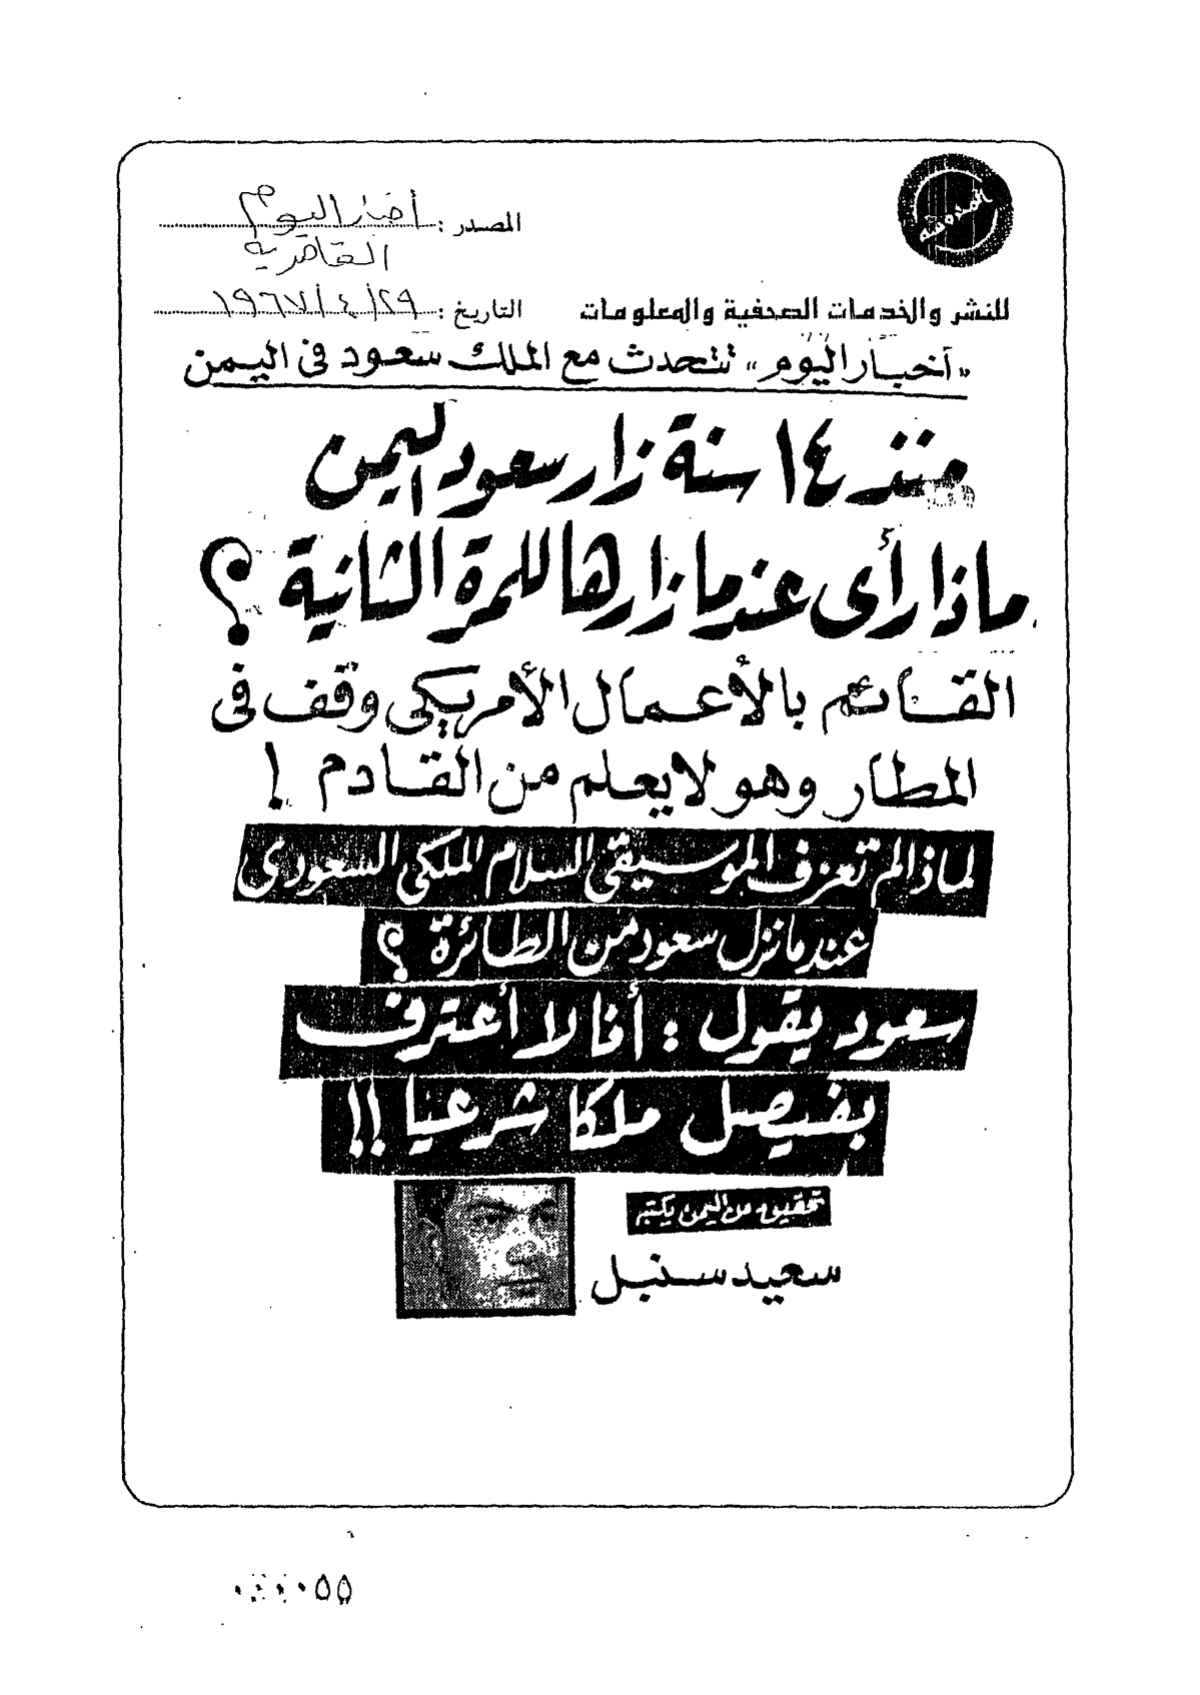 المصدر : أخبار اليوم
القاهرية
للنشر والخدمات الصحفية والمعلومات
التاريخ : ٢٩/٤/١٩٦٧
«أخبار اليوم» تتحدث مع الملك سعود فى اليمن
منذ ١٤ سنة زار سعود اليمن
ماذا رأى عندما زارها للمرة الثانية ؟
القائم بالأعمال الأمريكى وقف فى
المطار وهو لا يعلم من القادم !
لماذا لم تعزف الموسيقى السلام الملكى السعودى
عندما نزل سعود من الطائرة ؟
سعود يقول : أنا لا أعترف
بفيصل ملكا شرعيا !!
تحقيق من اليمن يكتبه
سعيد سنبل